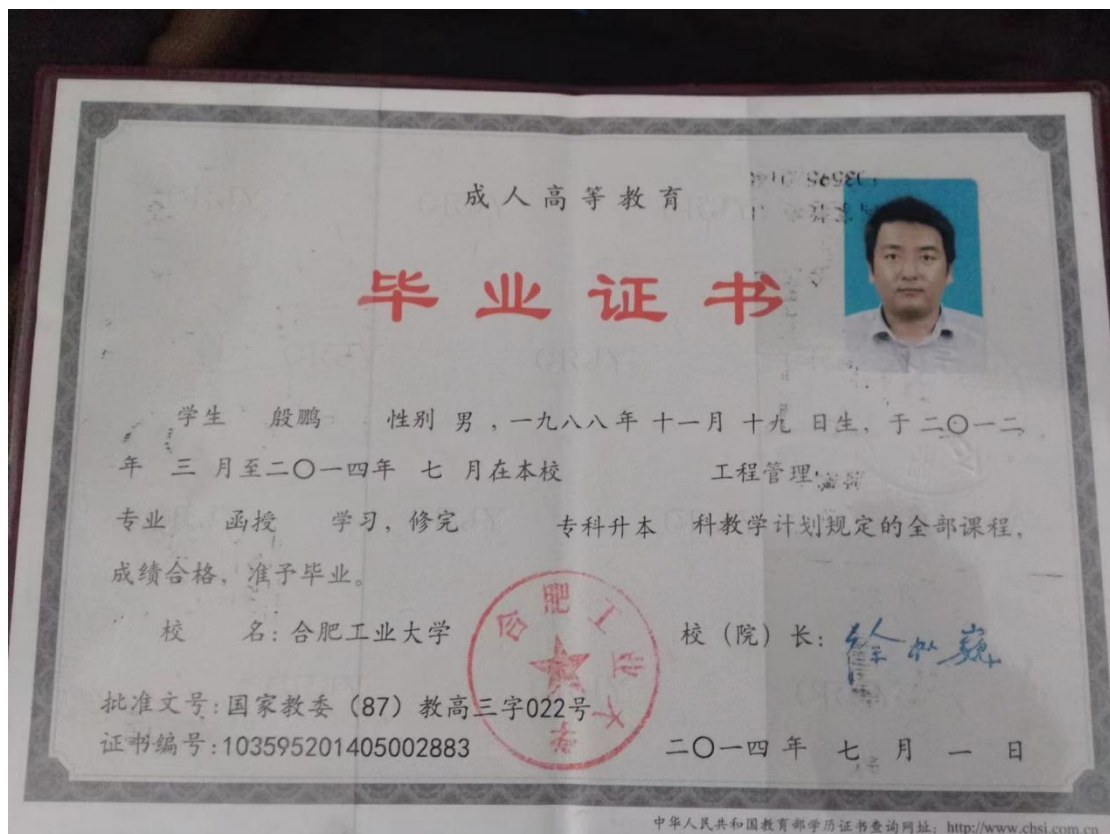 成人高等教育
毕业证书
学生 殷鹏 性别 男 ,一九八八年 十一月 十九 日生, 于二〇一二
年 三 月至二〇一四年 七 月在本校 工程管理
专业 函授 学习, 修完 专科升本 科教学计划规定的全部课程,
成绩合格, 准予毕业。
校 名: 合肥工业大学 校 (院) 长:
合肥工业大学
批准文号: 国家教委 (87) 教高三字022号
证书编号: 103595201405002883 二〇一四 年 七 月 一 日
中华人民共和国教育部学历证书查询网址: http://www.chsi.com.cn